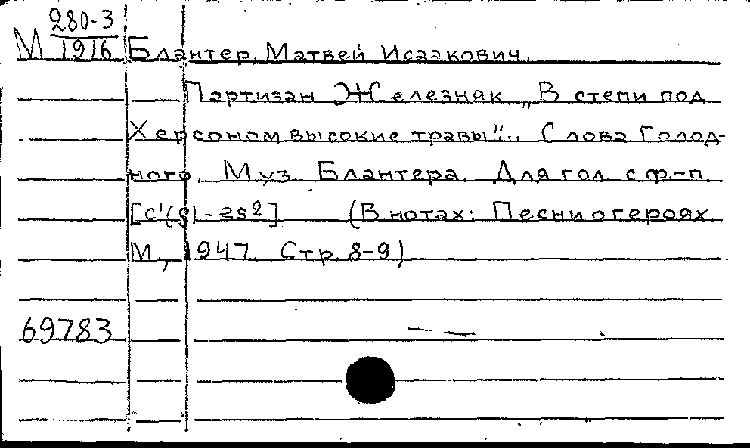 М 280-3
1916 Блантер, Матвей Исаакович.
Партизан Железняк „В степи под
Херсоном высокие травы".. Слова Голод-
ного. Муз. Блантера. Для гол. с ф-п.
(В нотах: Песни о героях.
М., 1947. Стр. 8-9)
69783